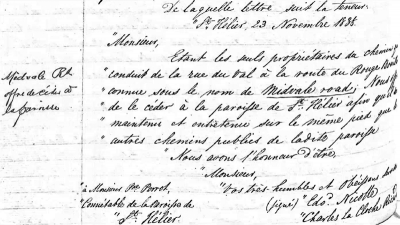 de laquelle lettre, suit la teneur.
"St. Hélier, 23 Novembre 1888.
"Monsieur,
Etant les seuls propriétaires du chemin q
"conduit de la rue du Val à la route du Rouge
"connue sous le nom de Midvale road; Nous
"de le céder à la paroisse de St. Hélier afin qu'il
"maintenu et entretenu sur le même pied que
"autres chemins publics de ladite paroisse
"Nous avons l'honneur d'être,
Midvale Rd
offre de céder à
la paroisse
"Monsieur,
"à Monsieur
"Connétable de la Paroisse de
"St. Hélier.
"Vos très humbles et Obéissans
(signé) "Edo. Nicolle
"Charles Le Cloche